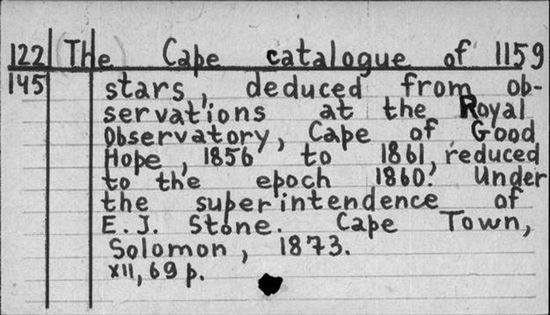 122 The Cape catalogue of 1159
145 stars, deduced from ob-
servations at the Royal
Observatory, Cape of Good
Hope, 1856 to 1861, reduced
to the epoch 1860. Under
the superintendence of
E.J. Stone. Cape Town,
Solomon, 1873.
XII, 69 p.